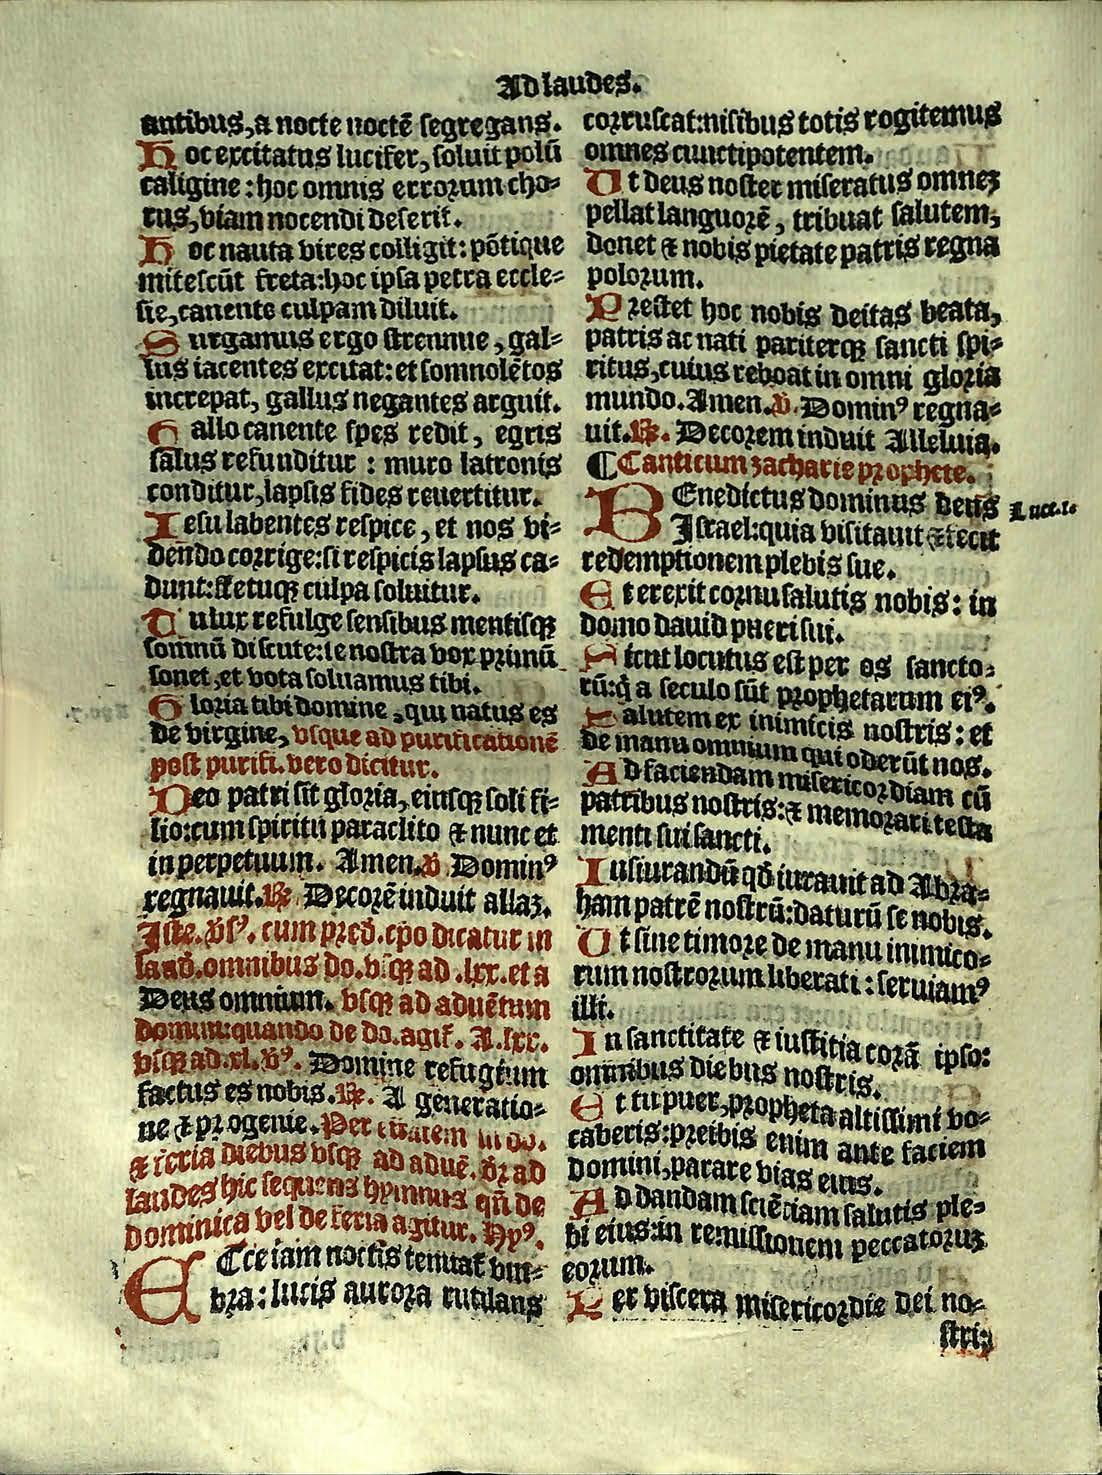 Ad laudes.
antibus, a nocte noctē segregans.
Hoc excitatus lucifer, soluit polū
caligine : hoc omnis errorum cho-
rus, viam nocendi deserit.
Hoc nauta vires colligit: pōtique
mitescūt freta: hoc ipsa petra eccle-
sie, canente culpam diluit.
Surgamus ergo strennue, gal-
lus iacentes excitat: et somnolētos
increpat, gallus negantes arguit.
Gallo canente spes redit, egris
salus refunditur : muro latronis
conditur, lapsis fides reuertitur.
Iesu labentes respice, et nos vi-
dendo corrige: si respicis lapsus ca-
dunt: fletuqꝫ culpa soluitur.
Tu lux refulge sensibus mentisqꝫ
somnū discute: te nostra vox primū
sonet, et vota soluamus tibi.
Gloria tibi domine, qui natus es
de virgine, vsque ad purificationē
post purifi. vero dicitur.
Deo patri sit gloria, eiusqꝫ soli fi-
lio: cum spiritu paraclito & nunc et
in perpetuum. Amen. ℣ Dominꝰ
regnauit. ℟. Decorē induit allaꝫ.
Iste. v̄sꝰ. cum pred. cpo dicatur in
laud. omnibus do. vsqꝫ ad .lxx. et a
Deus omnium. vsqꝫ ad aduētum
domini: quando de do. agit̄. A .lxx.
vsqꝫ ad .xl. v̄ꝰ. Domine refugium
factus es nobis. ℟. A generatio-
ne & progenie. Per estatem in do.
& feria diebus vsqꝫ ad aduē. v̄ꝫ ad
laudes hic sequens hymnus qn̄ de
dominica vel de feria agitur. Hyꝰ.
ECce iam noctis tenuat̄ vm-
bra: lucis aurora rutilans
corruscat: nisibus totis rogitemus
omnes cunctipotentem.
Ut deus noster miseratus omneꝫ
pellat languorē, tribuat salutem,
donet & nobis pietate patris regna
polorum.
Prestet hoc nobis deitas beata,
patris ac nati pariterqꝫ sancti spi-
ritus, cuius reboat in omni gloria
mundo. Amen. ℣. Dominꝰ regna-
uit. ℟. Decorem induit Alleluia.
¶ Canticum zacharie prophete.
BEnedictus dominus deus
Israel: quia visitauit & fecit
redemptionem plebis sue.
Luce. 1.
Et erexit cornu salutis nobis: in
domo dauid pueri sui.
Sicut locutus est per os sancto-
rū: q̄ a seculo sūt prophetarum eiꝰ.
Salutem ex inimicis nostris: et
de manu omnium qui oderūt nos.
Ad faciendam misericordiam cū
patribus nostris: & memorari testa
menti sui sancti.
Iusiurandū qd̄ iurauit ad Abra-
ham patrē nostrū: daturū se nobis.
Ut sine timore de manu inimico-
rum nostrorum liberati: seruiamꝰ
illi.
In sanctitate & iustitia corā ipso:
omnibus diebus nostris.
Et tu puer, propheta altissimi vo-
caberis: preibis enim ante faciem
domini, parare vias eius.
Ad dandam sciētiam salutis ple-
bi eius: in remissionem peccatoruꝫ
eorum.
Per viscera misericordie dei no-
stri: